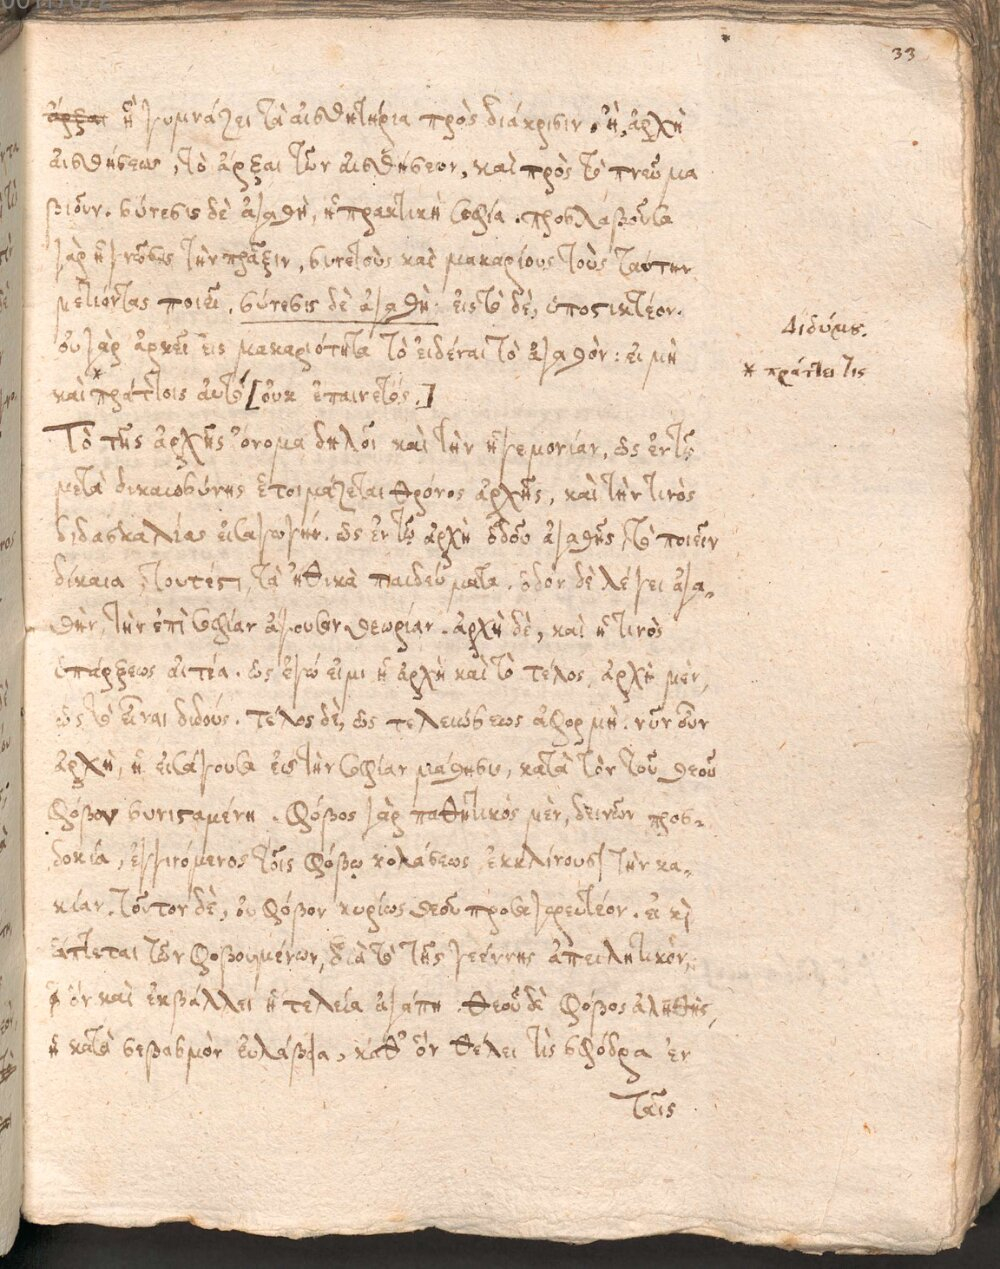 33
ἄρξαι ἢ γυμνάζει τὰ αἰσθητήρια πρὸς διάκρισιν. ἢ, ἀρχὴ
αἰσθήσεως, τὸ ἄρξαι τῶν αἰσθήσεων, καὶ πρὸς τὸ πνεῦμα
βιοῦν. σύνεσις δὲ ἀγαθὴ, ἡ πρακτικὴ σοφία. προσλαβοῦσα
γὰρ ἡ γνῶσις τὴν πρᾶξιν, συνετοὺς καὶ μακαρίους τοὺς ταύτην
μετιόντας ποιεῖ. σύνεσις δὲ ἀγαθὴ: εἰς τὸ δὲ, ὑποστικτέον.
οὐ γὰρ ἀρκεῖ εἰς μακαριότητα τὸ εἰδέναι τὸ ἀγαθόν: εἰ μὴ
καὶ * πράττοις αὐτὸ [οὐκ ἐπαινετός.]
Διδύμου.
* πράττει τις
Τὸ τῆς ἀρχῆς ὄνομα δηλοῖ καὶ τὴν ἡγεμονίαν, ὡς ἐν τῷ
μετὰ δικαιοσύνης ἑτοιμάζεται θρόνος ἀρχῆς, καὶ τὴν τινὸς
διδασκαλίας εἰσαγωγήν. ὡς ἐν τῷ ἀρχὴ ὁδοῦ ἀγαθῆς, τὸ ποιεῖν
δίκαια, τουτέστι, τὰ ἠθικὰ παιδεύματα. ὁδὸν δὲ λέγει ἀγα-
θὴν, τὴν ἐπὶ σοφίαν ἄγουσαν θεωρίαν. ἀρχὴ δὲ, καὶ ἡ τινὸς
ὑπάρξεως αἰτία. ὡς ἐγώ εἰμι ἡ ἀρχὴ καὶ τὸ τέλος, ἀρχὴ μὲν,
ὡς τὸ εἶναι διδούς. τέλος δὲ, ὡς τελειώσεως ἀφορμὴ. νῦν οὖν
ἀρχὴ, ἡ εἰσάγουσα εἰς τὴν σοφίαν μάθησις, κατὰ τὸν τοῦ θεοῦ
φόβον συνισταμένη. φόβος γὰρ παθητικὸς μὲν, δεινῶν προσ-
δοκία, ἐγγινόμενος τοῖς φόβῳ κολάσεως ἐκκλίνουσι τὴν κα-
κίαν. τοῦτον δὲ, οὐ φόβον κυρίως θεοῦ προσαγορευτέον. εἰ καὶ
ἅπτεται τῶν φοβουμένων, διὰ τὸ τῆς γεέννης ἀπειλητικόν,
ὃν καὶ ἐκβάλλει ἡ τελεία ἀγάπη. θεοῦ δὲ φόβος ἀληθὴς,
ἡ κατὰ σεβασμὸν εὐλάβεια, καθ' ὃν θέλει τὶς σφόδρα ἐν
ταῖς